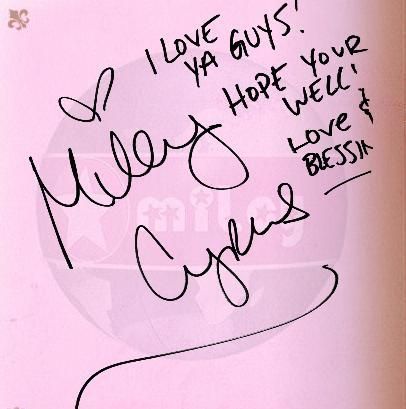 I LOVE
YA GUYS!
HOPE YOUR
WELL!
LOVE &
BLESSIN
Miley
Cyrus
miley